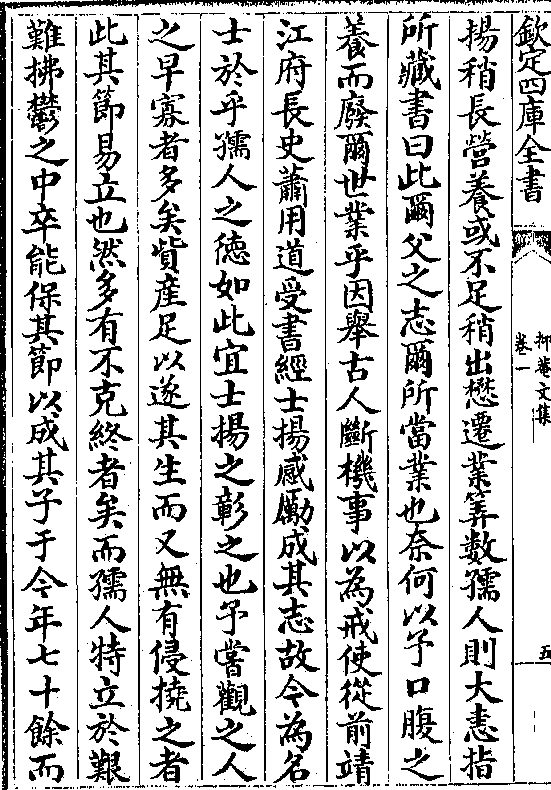 欽定四庫全書
抑菴文集
卷一
五
揚稍長營養或不足稍出懋遷業筭數孺人則大恚指
所藏書曰此爾父之志爾所當業也奈何以予口腹之
養而廢爾世業乎因舉古人斷機事以為戒使從前靖
江府長史蕭用道受書經士揚感勵成其志故今為名
士於乎孺人之徳如此宜士揚之彰之也予嘗觀之人
之早寡者多矣貲產足以遂其生而又無有侵撓之者
此其節易立也然多有不克終者矣而孺人特立於艱
難拂鬱之中卒能保其節以成其子于今年七十餘而